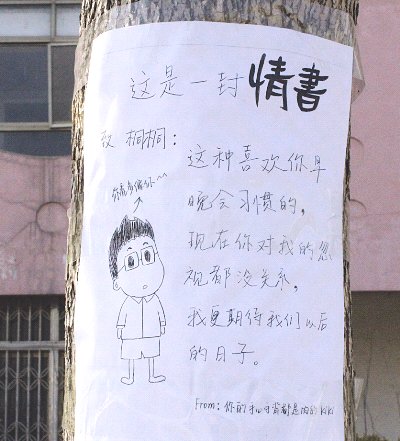 这是一封情書
致 桐桐：
这种喜欢你早
晚会习惯的，
现在你对我的忽
视都没关系，
我更期待我们以后
的日子。
From: 你的 kiki